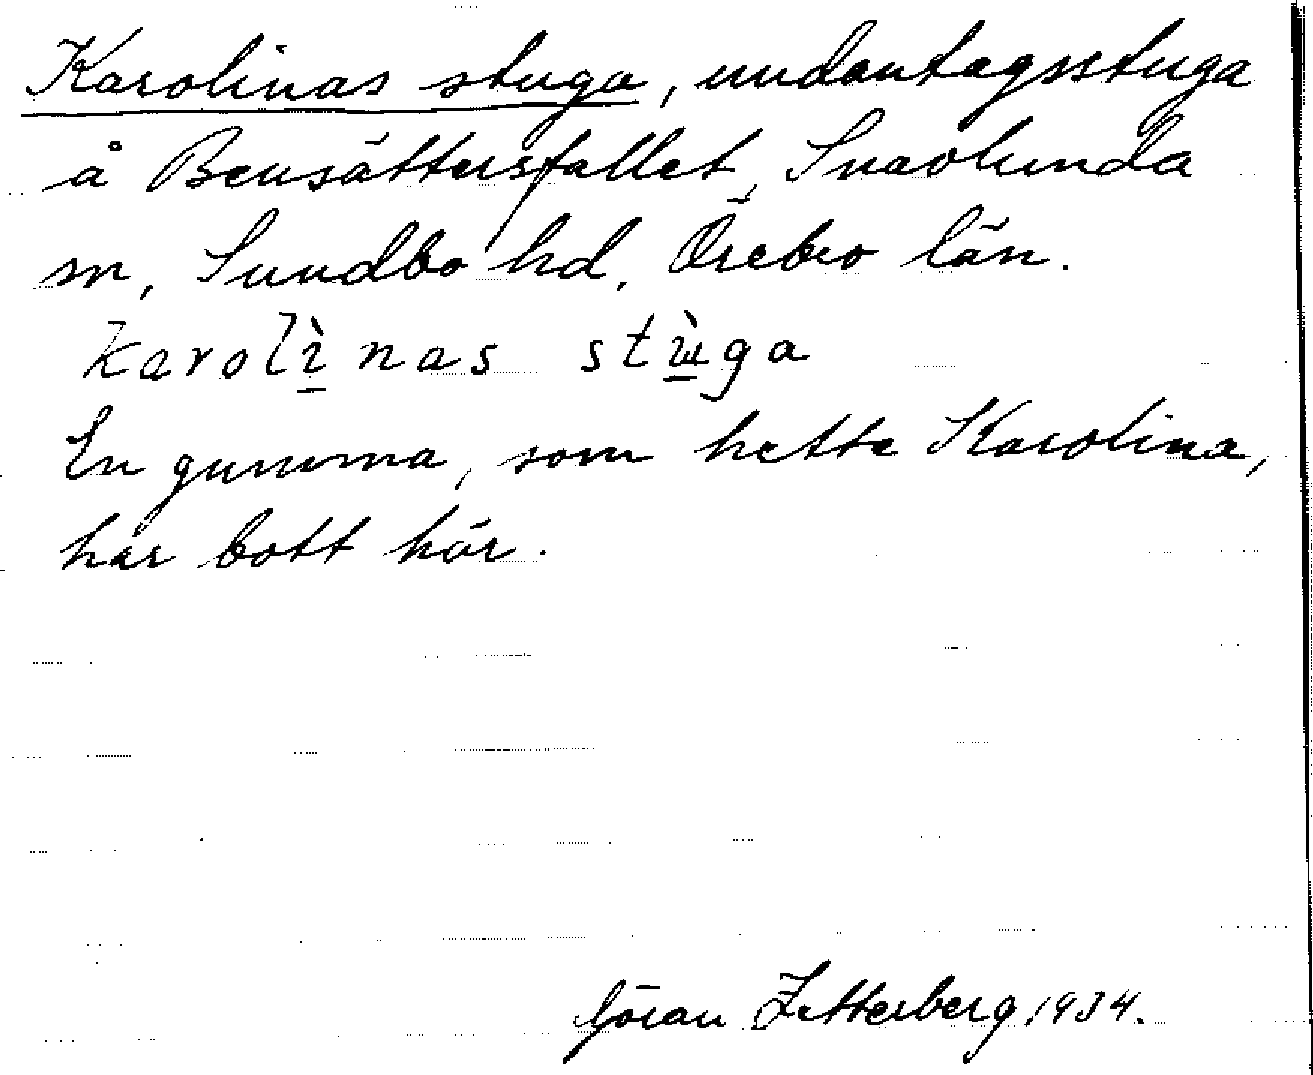 Karolinas stuga, undantagsstuga
å Bensättersfallet, Snavlunda
sn, Sundbo hd, Örebro län.
Karolì̱nas stù̱ga
En gumma, som hette Karolina,
har bott här.
Göran Zetterberg 1934.